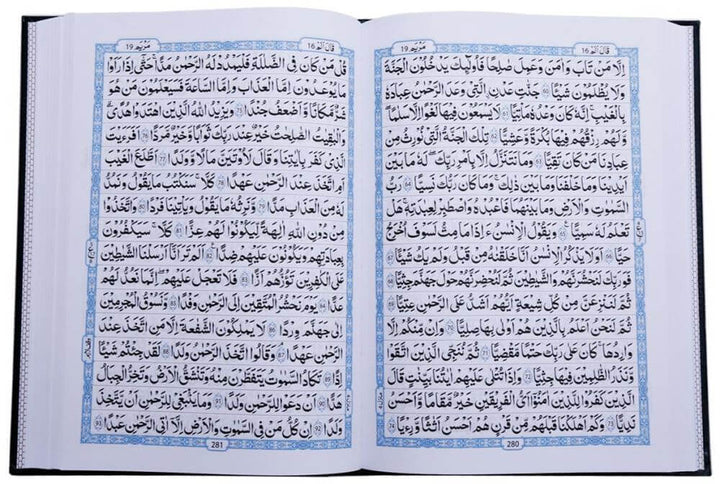 قَالَ اَلَمْ 16 مَرْيَم 19
اِلَّا مَنْ تَابَ وَاٰمَنَ وَعَمِلَ صَالِحًا فَاُولٰٓئِكَ يَدْخُلُوْنَ الْجَنَّةَ
وَلَا يُظْلَمُوْنَ شَيْئًا ﴿٦٠﴾ جَنّٰتِ عَدْنِ ۨالَّتِيْ وَعَدَ الرَّحْمٰنُ عِبَادَهٗ
بِالْغَيْبِ ؕ اِنَّهٗ كَانَ وَعْدُهٗ مَاْتِيًّا ﴿٦١﴾ لَا يَسْمَعُوْنَ فِيْهَا لَغْوًا اِلَّا سَلٰمًا ؕ
وَلَهُمْ رِزْقُهُمْ فِيْهَا بُكْرَةً وَّعَشِيًّا ﴿٦٢﴾ تِلْكَ الْجَنَّةُ الَّتِيْ نُوْرِثُ مِنْ
عِبَادِنَا مَنْ كَانَ تَقِيًّا ﴿٦٣﴾ وَمَا نَتَنَزَّلُ اِلَّا بِاَمْرِ رَبِّكَ ۚ لَهٗ مَا بَيْنَ
اَيْدِيْنَا وَمَا خَلْفَنَا وَمَا بَيْنَ ذٰلِكَ ۚ وَمَا كَانَ رَبُّكَ نَسِيًّا ﴿٦٤﴾ رَبُّ
السَّمٰوٰتِ وَالْاَرْضِ وَمَا بَيْنَهُمَا فَاعْبُدْهُ وَاصْطَبِرْ لِعِبَادَتِهٖ ؕ هَلْ
تَعْلَمُ لَهٗ سَمِيًّا ﴿٦٥﴾ وَيَقُوْلُ الْاِنْسَانُ ءَاِذَا مَا مِتُّ لَسَوْفَ اُخْرَجُ
حَيًّا ﴿٦٦﴾ اَوَلَا يَذْكُرُ الْاِنْسَانُ اَنَّا خَلَقْنٰهُ مِنْ قَبْلُ وَلَمْ يَكُ شَيْئًا ﴿٦٧﴾
فَوَرَبِّكَ لَنَحْشُرَنَّهُمْ وَالشَّيٰطِيْنَ ثُمَّ لَنُحْضِرَنَّهُمْ حَوْلَ جَهَنَّمَ جِثِيًّا ﴿٦٨﴾
ثُمَّ لَنَنْزِعَنَّ مِنْ كُلِّ شِيْعَةٍ اَيُّهُمْ اَشَدُّ عَلَى الرَّحْمٰنِ عِتِيًّا ﴿٦٩﴾
ثُمَّ لَنَحْنُ اَعْلَمُ بِالَّذِيْنَ هُمْ اَوْلٰى بِهَا صِلِيًّا ﴿٧٠﴾ وَاِنْ مِّنْكُمْ اِلَّا
وَارِدُهَا ۚ كَانَ عَلٰى رَبِّكَ حَتْمًا مَّقْضِيًّا ﴿٧١﴾ ثُمَّ نُنَجِّي الَّذِيْنَ اتَّقَوْا
وَّنَذَرُ الظّٰلِمِيْنَ فِيْهَا جِثِيًّا ﴿٧٢﴾ وَاِذَا تُتْلٰى عَلَيْهِمْ اٰيٰتُنَا بَيِّنٰتٍ قَالَ
الَّذِيْنَ كَفَرُوْا لِلَّذِيْنَ اٰمَنُوْۤا ۙ اَيُّ الْفَرِيْقَيْنِ خَيْرٌ مَّقَامًا وَّاَحْسَنُ
نَدِيًّا ﴿٧٣﴾ وَكَمْ اَهْلَكْنَا قَبْلَهُمْ مِّنْ قَرْنٍ هُمْ اَحْسَنُ اَثَاثًا وَّرِءْيًا ﴿٧٤﴾
280
قَالَ اَلَمْ 16 مَرْيَم 19
قُلْ مَنْ كَانَ فِي الضَّلٰلَةِ فَلْيَمْدُدْ لَهُ الرَّحْمٰنُ مَدًّا ۚ حَتّٰۤى اِذَا رَاَوْا
مَا يُوْعَدُوْنَ اِمَّا الْعَذَابَ وَاِمَّا السَّاعَةَ ؕ فَسَيَعْلَمُوْنَ مَنْ هُوَ
شَرٌّ مَّكَانًا وَّاَضْعَفُ جُنْدًا ﴿٧٥﴾ وَيَزِيْدُ اللّٰهُ الَّذِيْنَ اهْتَدَوْا هُدًى ؕ
وَالْبٰقِيٰتُ الصّٰلِحٰتُ خَيْرٌ عِنْدَ رَبِّكَ ثَوَابًا وَّخَيْرٌ مَّرَدًّا ﴿٧٦﴾ اَفَرَءَيْتَ
الَّذِيْ كَفَرَ بِاٰيٰتِنَا وَقَالَ لَاُوْتَيَنَّ مَالًا وَّوَلَدًا ﴿٧٧﴾ اَطَّلَعَ الْغَيْبَ
اَمِ اتَّخَذَ عِنْدَ الرَّحْمٰنِ عَهْدًا ﴿٧٨﴾ كَلَّا ؕ سَنَكْتُبُ مَا يَقُوْلُ وَنَمُدُّ
لَهٗ مِنَ الْعَذَابِ مَدًّا ﴿٧٩﴾ وَّنَرِثُهٗ مَا يَقُوْلُ وَيَاْتِيْنَا فَرْدًا ﴿٨٠﴾ وَاتَّخَذُوْا
مِنْ دُوْنِ اللّٰهِ اٰلِهَةً لِّيَكُوْنُوْا لَهُمْ عِزًّا ﴿٨١﴾ كَلَّا ؕ سَيَكْفُرُوْنَ
بِعِبَادَتِهِمْ وَيَكُوْنُوْنَ عَلَيْهِمْ ضِدًّا ﴿٨٢﴾ اَلَمْ تَرَ اَنَّاۤ اَرْسَلْنَا الشَّيٰطِيْنَ
عَلَى الْكٰفِرِيْنَ تَؤُزُّهُمْ اَزًّا ﴿٨٣﴾ فَلَا تَعْجَلْ عَلَيْهِمْ ؕ اِنَّمَا نَعُدُّ لَهُمْ
عَدًّا ﴿٨٤﴾ يَوْمَ نَحْشُرُ الْمُتَّقِيْنَ اِلَى الرَّحْمٰنِ وَفْدًا ﴿٨٥﴾ وَّنَسُوْقُ الْمُجْرِمِيْنَ
اِلٰى جَهَنَّمَ وِرْدًا ﴿٨٦﴾ لَا يَمْلِكُوْنَ الشَّفَاعَةَ اِلَّا مَنِ اتَّخَذَ عِنْدَ
الرَّحْمٰنِ عَهْدًا ﴿٨٧﴾ وَقَالُوا اتَّخَذَ الرَّحْمٰنُ وَلَدًا ﴿٨٨﴾ لَقَدْ جِئْتُمْ شَيْئًا
اِدًّا ﴿٨٩﴾ تَكَادُ السَّمٰوٰتُ يَتَفَطَّرْنَ مِنْهُ وَتَنْشَقُّ الْاَرْضُ وَتَخِرُّ الْجِبَالُ
هَدًّا ﴿٩٠﴾ اَنْ دَعَوْا لِلرَّحْمٰنِ وَلَدًا ﴿٩١﴾ وَمَا يَنْۢبَغِيْ لِلرَّحْمٰنِ اَنْ يَّتَّخِذَ
وَلَدًا ﴿٩٢﴾ اِنْ كُلُّ مَنْ فِي السَّمٰوٰتِ وَالْاَرْضِ اِلَّاۤ اٰتِي الرَّحْمٰنِ عَبْدًا ﴿٩٣﴾
281